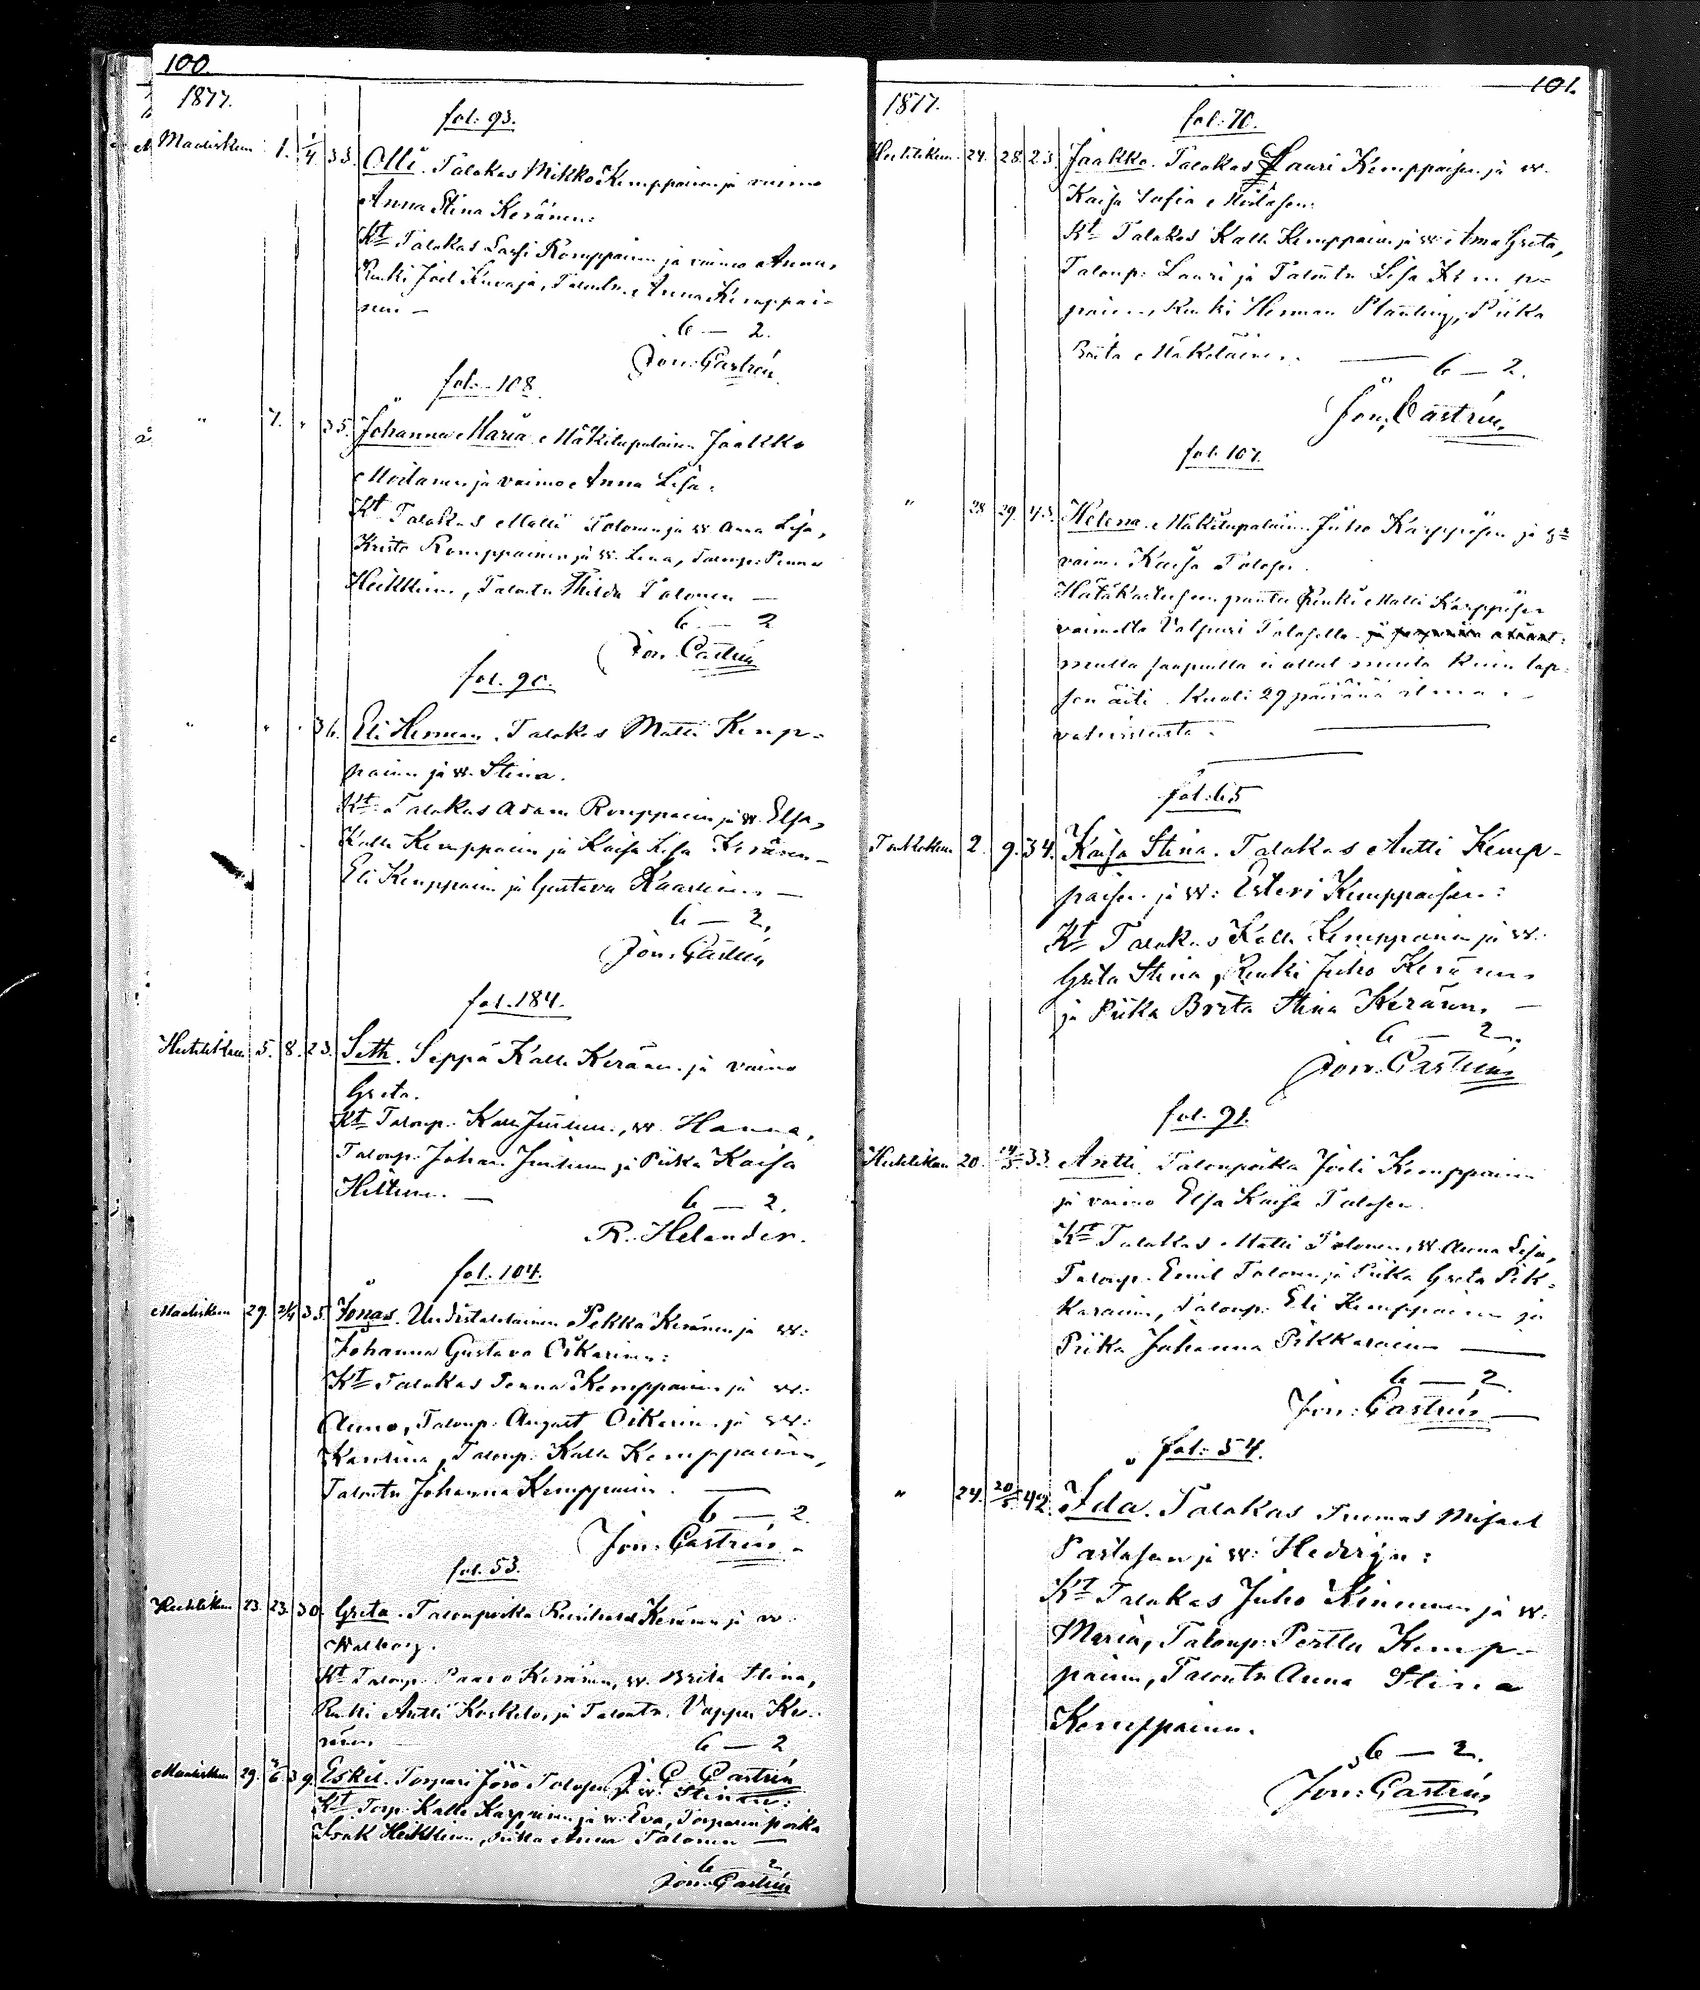 100.
1877.
fol. 93.
Maalisk. 1. 1/4 33. Olli. Talokas Mikko Kemppainen ja vaimo
Anna Stina Keränen:
Kt Talokas Lassi Romppainen ja vaimo Anna,
Renki Joel Kuvaja, Talontr. Anna Kemppai-
nen —
6 — 2.
Jon: Castrén
fol. 108
" 7. " 35. Johanna Maria. Mäkitupalainen Jaakko
Moilanen ja vaimo Anna Lisa.
Kt Talokas Matti Tolonen ja w. Anna Lisa,
Romppainen ja w. Lena, Talonp:
Heikkinen, Talontr Tolonen —
6 — 2
Jon. Castrén
fol. 90.
" " " 36. Eli Herman. Talokas Matti Kemp-
painen ja w. Stina.
Kt Talokas Adam Romppainen ja w. Elsa,
Kalle Kemppainen ja Kaisa Lisa Keränen
Eli Kemppainen ja Gustava —
6 — 2,
Jon: Castrén
fol. 184.
Huhtikuu 5. 8. 23. Seth. Seppä Kalle Keränen ja vaimo
Greta.
Kt Talonp. Kalle Juntunen, w. Hanna,
Talonp. Johan Juntunen ja Piika Kaisa
Hiltunen. —
6 — 2.
R. Helander.
fol. 104.
Maaliskuu 29. 2/4 35. Jonas. Uudistalolainen Pekka Keränen ja w:
Johanna Gustava Oikarinen:
Kt Talokas Kemppainen ja w:
Anna, Talonp: August Oikarinen ja w:
Karolina, Talonp: Kalle Kemppainen,
Talontr Johanna Kemppainen. —
6 — 2.
Jon: Castrén
fol. 53.
Huhtikuu 23. 23. 30. Greta. Talonpoika Keränen ja w.
Walborg.
Kt Talonp. Paavo Keränen, w. Brita Stina,
Renki Antti Koskelo, ja Talontr. Vappu Ke-
ränen.
6 — 2
J. C. Castrén
Maaliskuu 29. 39. Eskil. Torpari Tolosen ja w: Stinan:
Kt Torp. Kalle Karppinen ja w: Eva, Torparin poika
Isak Heikkinen, Piika Anna Tolonen —
6 — 2
Jon: Castrén
101.
1877.
fol: 70.
Huhtikuu. 24. 28. 23. Jaakko. Talokas Lauri Kemppaisen ja w.
Kaisa Sofia Moilasen:
Kt Talokas Kalle Kemppainen ja w: Anna Greta,
Talonp: Lauri ja Talontr Lisa Kemp-
painen, Renki Herman Planting, Piika
Brita Mäkeläinen. —
6 — 2.
Jon. Castrén,
fol. 107.
" 28 29. 43. Helena. Mäkitupalainen Juho Karppisen ja
vaimo Kaisa Tolosen.
Hätäkasteseen pantu Renki Matti Karppisen
vaimolta Valpuri Toloselta
muita saapuvilla ei ollut muita kuin lap-
sen äiti. Kuoli 29 päivänä ilman
vahvistusta.
fol. 65
Toukokuu 2. 9. 34. Kaisa Stina. Talokas Antti Kemp-
paisen ja w: Esteri Kemppaisen:
Kt Talokas Kalle Kemppainen ja w.
Greta Stina, Renki Juho Keränen
ja Piika Brita Stina Keränen. —
6 — 2.
Jon. Castrén
fol. 91.
Huhtikuu 20. 33. Antti. Talonpoika Joeli Kemppainen
ja vaimo Elsa Kaisa Tolosen.
Kt Talokas Matti Tolonen, w. Anna Lisa,
Talonp. Emil Tolonen ja Piika Greta Pik-
karainen, Talonp: Eli Kemppainen ja
Piika Johanna Pikkarainen —
6 — 2.
Jon: Castrén
fol: 54.
" 24. 20/5 42. Ida. Talokas Tuomas Misael
Partasen ja w: Hedvigin:
Kt Talokas Juho Kinnunen ja w.
Maria, Talonp: Perttu Kemp-
painen, Talontr Anna Stina
Kemppainen.
6 — 2.
Jon: Castrén